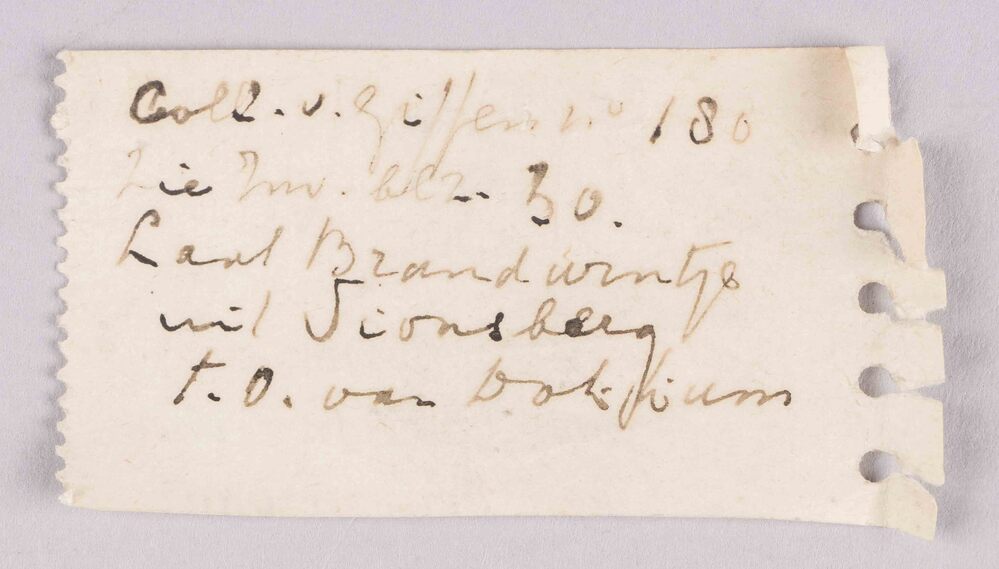 Coll. v. Giffen no 180
Zie Inv. blz. 30.
Laat Brandurntje
uit Sionsberg
t.O. van Dokkum